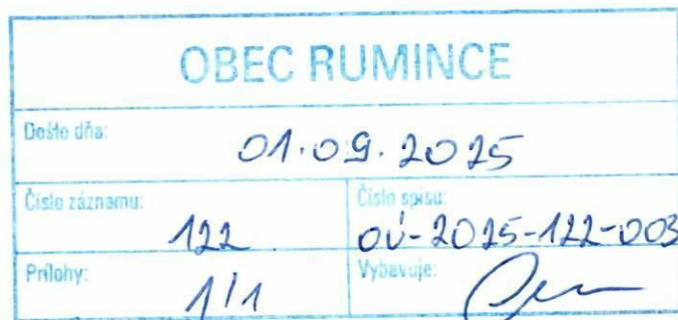 OBEC RUMINCE
Došlo dňa:
01.09.2025
Číslo záznamu:
122
Číslo spisu:
OÚ-2025-122-003
Prílohy:
1/1
Vybavuje: